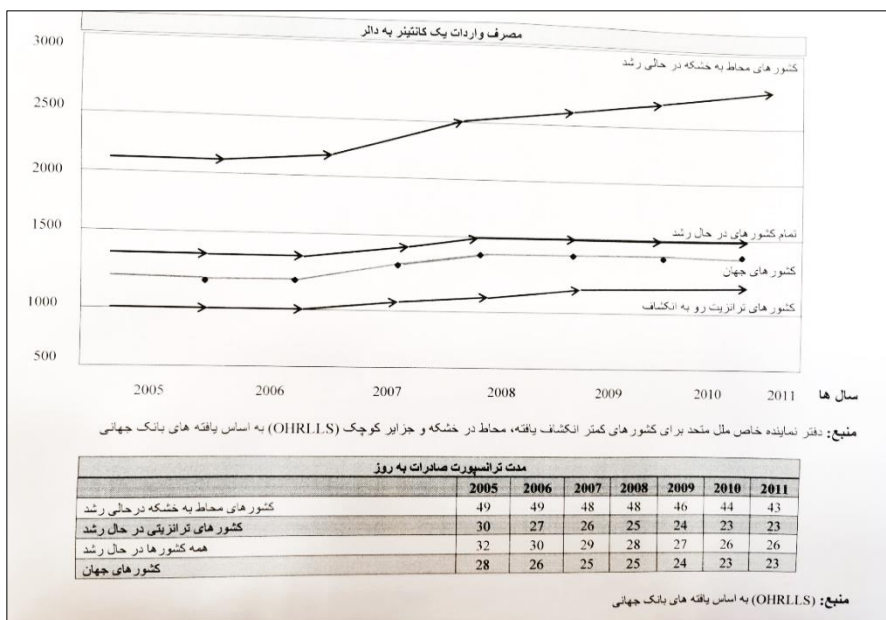 مصرف واردات یک کانتینر به دالر
3000
کشور های محاط به خشکه در حالی رشد
2500
2000
1500
تمام کشورهای در حال رشد
کشور های جهان
1000
کشور های ترانزیت رو به انکشاف
500
2005 2006 2007 2008 2009 2010 2011 سال ها
منبع: دفتر نماینده خاص ملل متحد برای کشور های کمتر انکشاف یافته، محاط در خشکه و جزایر کوچک (OHRLLS) به اساس یافته های بانک جهانی
مدت ترانسپورت صادرات به روز
2005 2006 2007 2008 2009 2010 2011
کشور های محاط به خشکه درحالی رشد 49 49 48 48 46 44 43
کشور های ترانزیتی در حال رشد 30 27 26 25 24 23 23
همه کشور ها در حال رشد 32 30 29 28 27 26 26
کشور های جهان 28 26 25 25 24 23 23
منبع: (OHRLLS) به اساس یافته های بانک جهانی